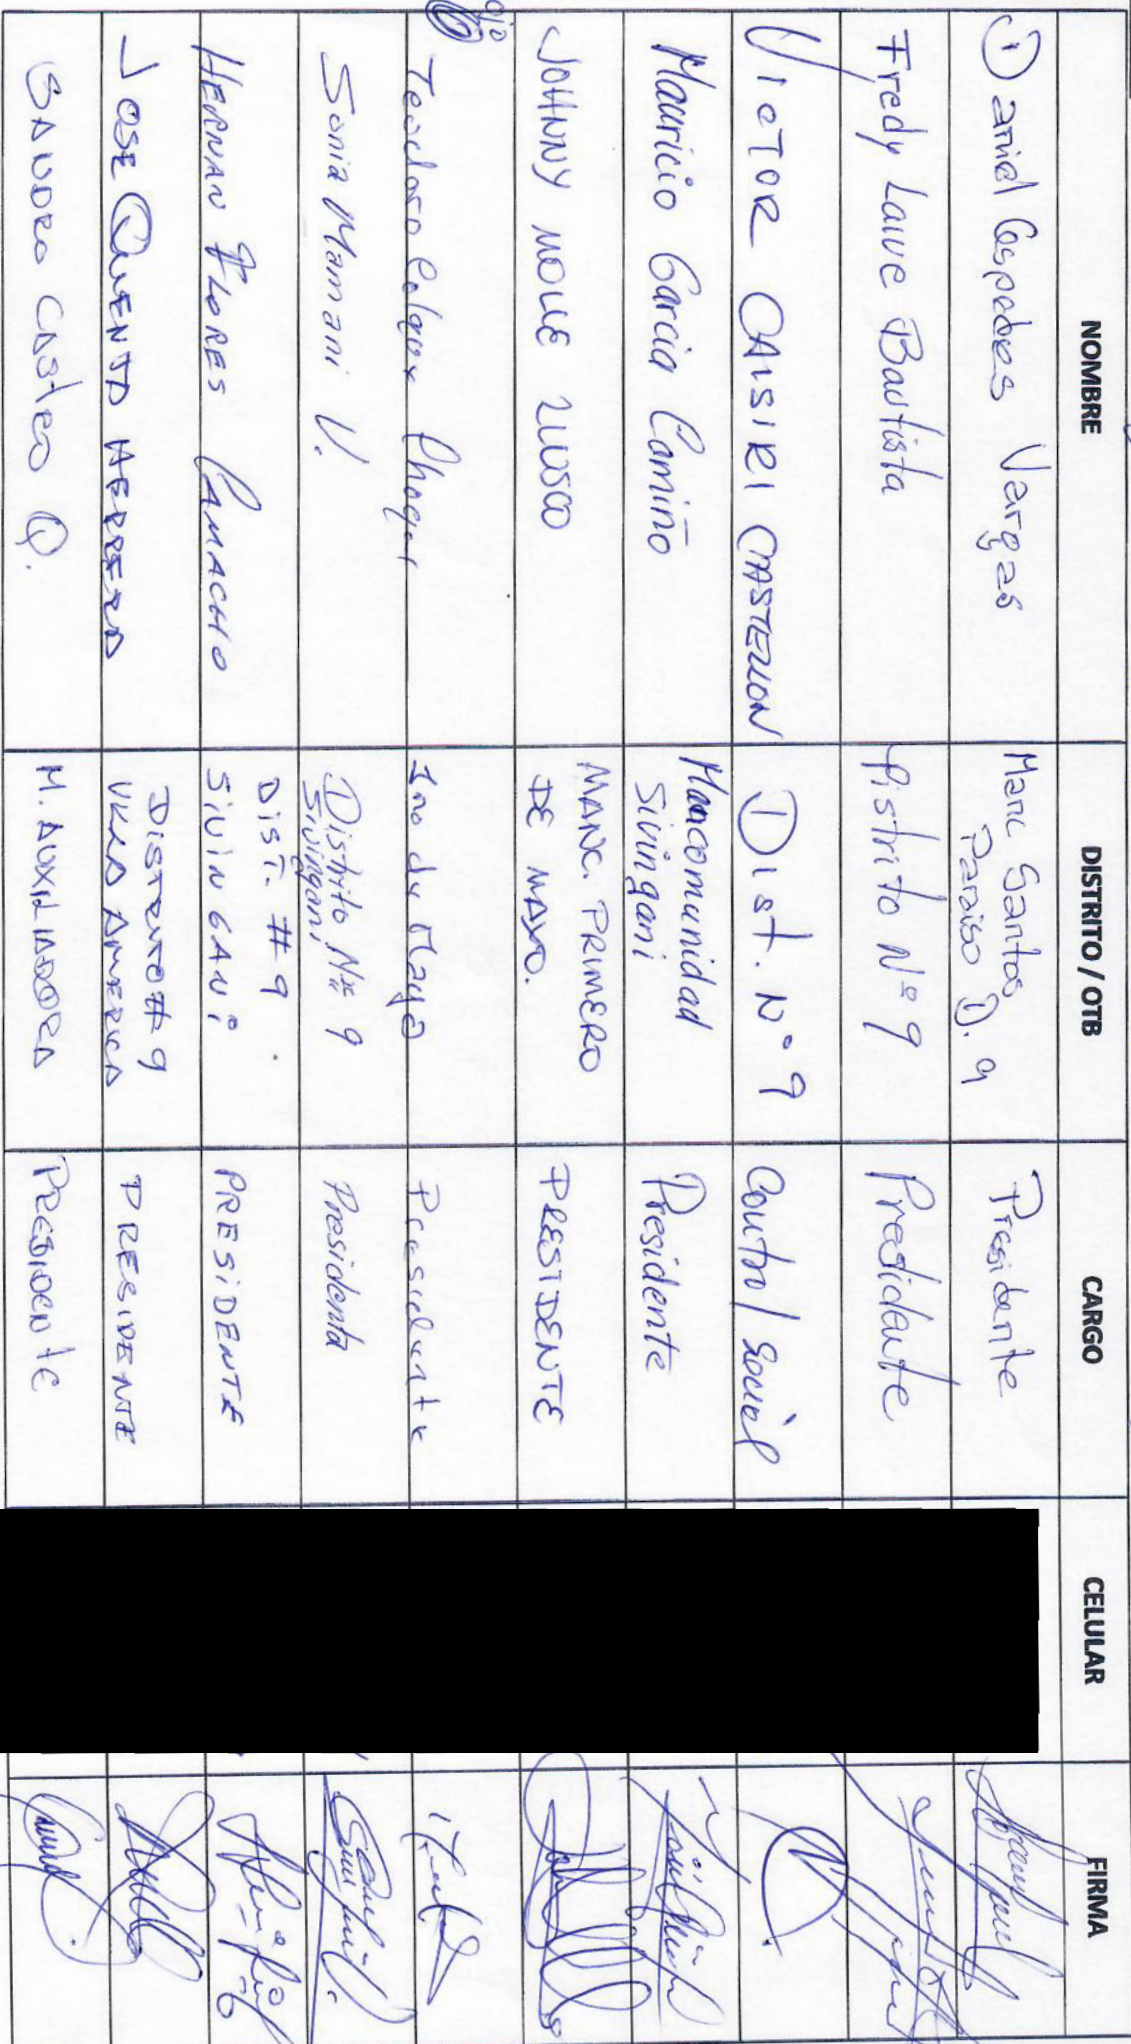 NOMBRE DISTRITO / OTB CARGO CELULAR FIRMA
Daniel Cespedes Vargas Marc Santos Paraiso D. 9 Presidente
Fredy Laive Bautista Distrito Nº 9 Presidente
VICTOR CAISIRI CASTELLON Dist. Nº 9 Control Social
Mauricio Garcia Camiño Mancomunidad Sivingani Presidente
JOHNNY MOLLE LLUSCO MANC. PRIMERO DE MAYO. PRESIDENTE
Teodoro Colque Choque 1ro de Mayo Presidente
Sonia Mamani V. Distrito Nº 9 Sivingani Presidenta
HERNAN FLORES CAMACHO DIST. #9 SIVINGANI PRESIDENTE
JOSE QUENTA HERRERA DISTRITO #9 VILLA AMERICA PRESIDENTE
SANDRO CASTRO Q. M. AUXILIADORA PRESIDENTE